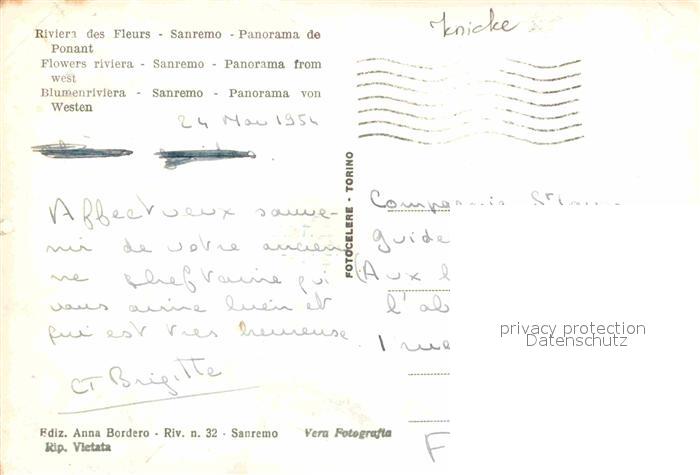 Knicke
Riviera des Fleurs - Sanremo - Panorama de
Ponant
Flowers riviera - Sanremo - Panorama from
west
Blumenriviera - Sanremo - Panorama von
Westen
24 Mai 1954
Affectueux souve-
nir de votre ancien
ne cheftaine qui
vous aime bien et
qui est très heureuse.
CT Brigitte
FOTOCELERE - TORINO
Compagnie St
guide
(Aux
l'
1 rue
F
privacy protection
Datenschutz
Ediz. Anna Bordero - Riv. n. 32 - Sanremo
Vera Fotografia
Rip. Vietata